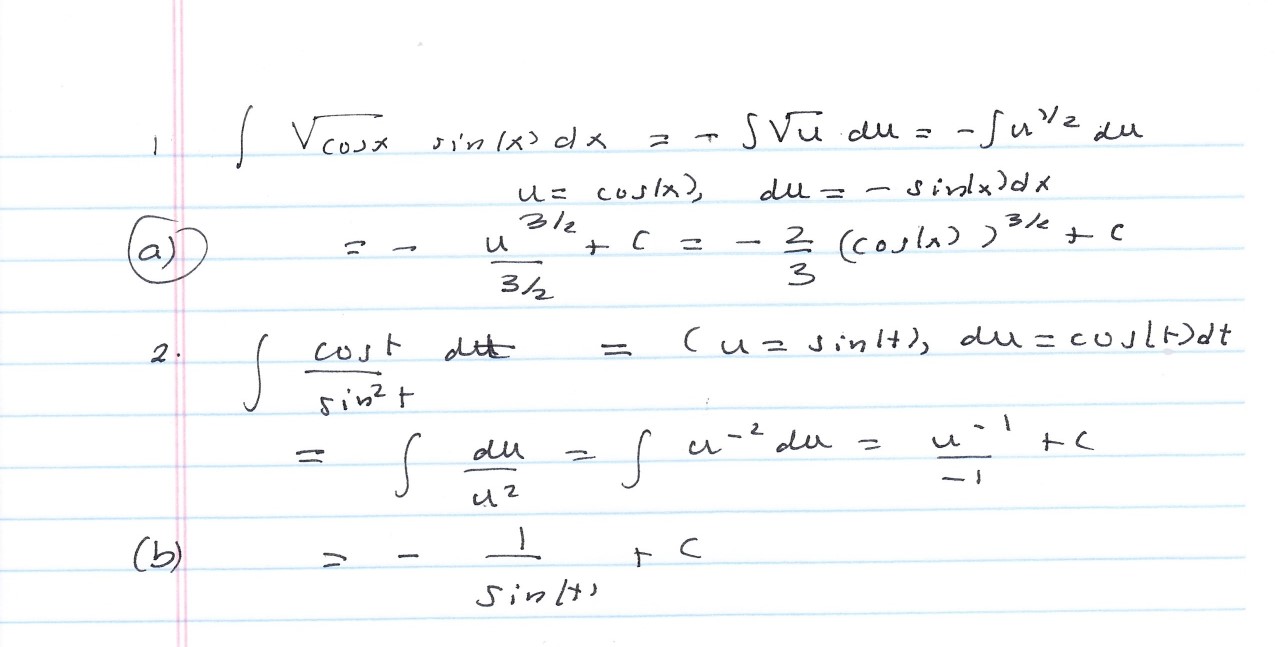 1 ∫ √cosx sin(x) dx = - ∫√u du = -∫u^1/2 du
u = cos(x), du = - sin(x)dx
a) = - u^3/2 / 3/2 + C = - 2/3 (cos(x))^3/2 + C
2. ∫ cost / sin²t dt = (u = sin(t), du = cos(t)dt
= ∫ du / u² = ∫ u^-2 du = u^-1 / -1 + C
(b) = - 1 / sin(t) + C